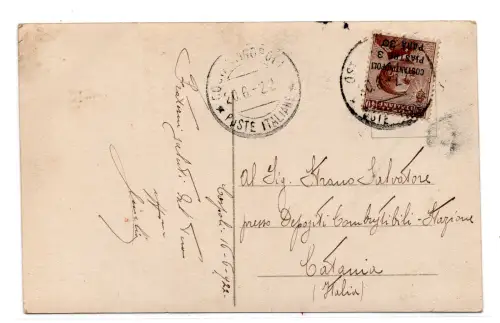 COSTANTINOPOLI
20.6.22
* POSTE ITALIANE *
COSTANTINOPOLI
PIASTRE 3
PARA 30
POSTE
Fraterni saluti dal tuo
16-6-922
Al Sig. Strano Salvatore
presso Depositi Combustibili - Stazione
Catania
(Italia)